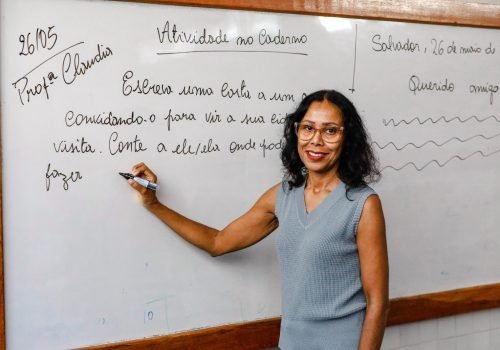 26/05
Profª Claudia
Atividade no Caderno
Escreva uma carta a um a
convidando-o para vir a sua cid
visita. Conte a ele/ela onde pod
fazer
Salvador, 26 de maio de
Querido amigo
10